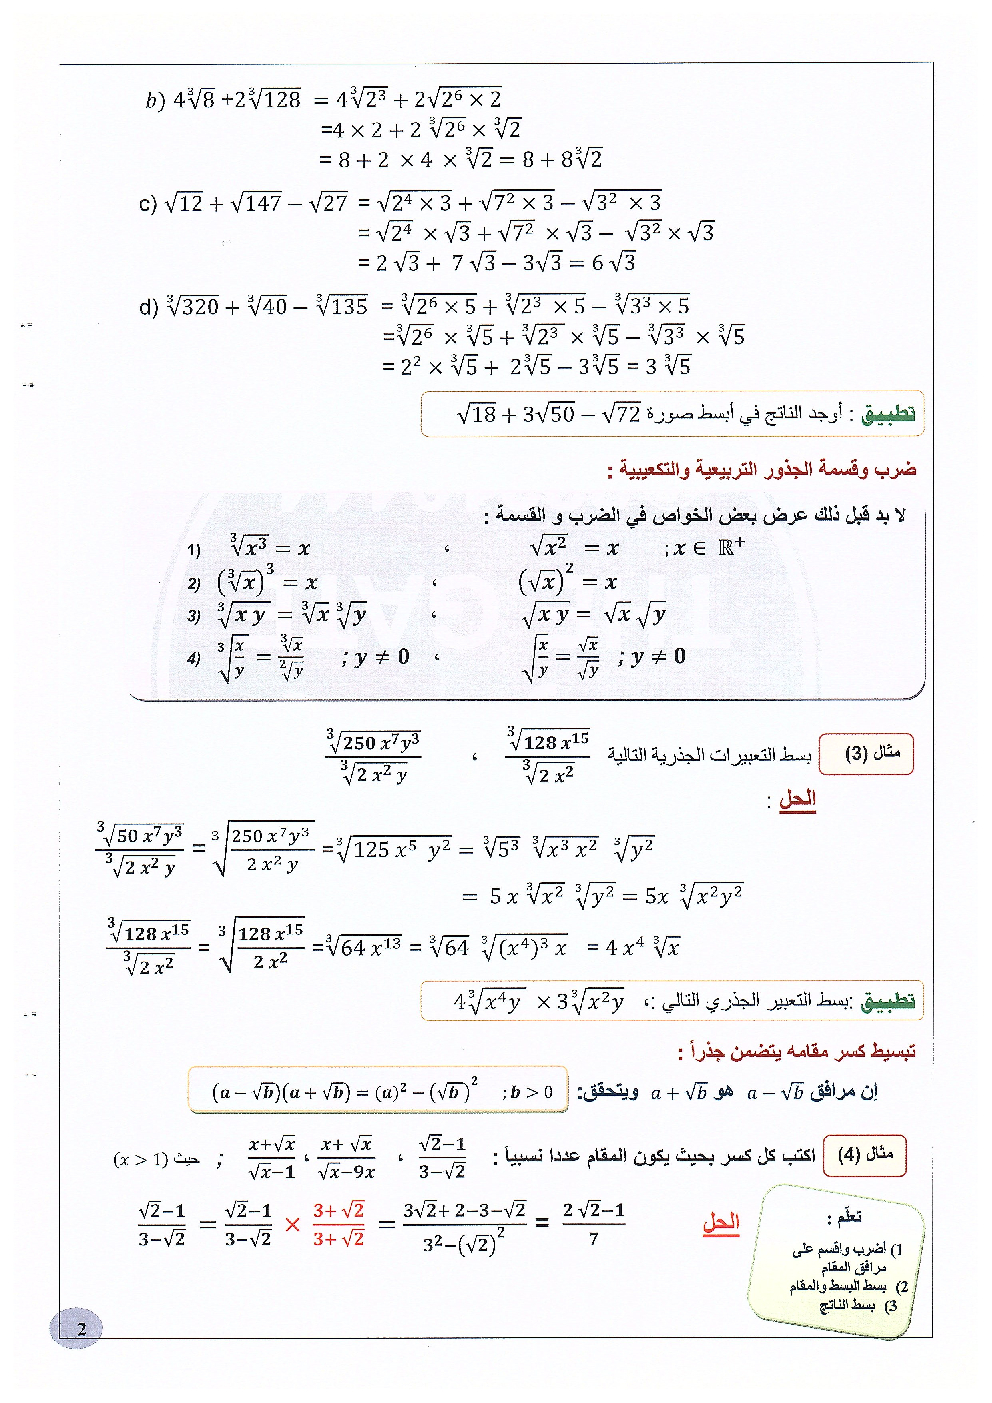 b) 4∛8 +2∛128 = 4∛2³ + 2√(2⁶ × 2)
=4 × 2 + 2 ∛2⁶ × ∛2
= 8 + 2 × 4 × ∛2 = 8 + 8∛2
c) √12 + √147 − √27 = √(2⁴ × 3) + √(7² × 3) − √(3² × 3)
= √2⁴ × √3 + √7² × √3 − √3² × √3
= 2 √3 + 7 √3 − 3√3 = 6 √3
d) ∛320 + ∛40 − ∛135 = ∛(2⁶ × 5) + ∛(2³ × 5) − ∛(3³ × 5)
=∛2⁶ × ∛5 + ∛2³ × ∛5 − ∛3³ × ∛5
= 2² × ∛5 + 2∛5 − 3∛5 = 3 ∛5
تطبيق : أوجد الناتج في أبسط صورة √18 + 3√50 − √72
ضرب وقسمة الجذور التربيعية والتكعيبية :
لا بد قبل ذلك عرض بعض الخواص في الضرب و القسمة :
1) ∛x³ = x ، √x² = x ; x ∈ ℝ⁺
2) (∛x)³ = x ، (√x)² = x
3) ∛(x y) = ∛x ∛y ، √(x y) = √x √y
4) ∛(x/y) = ∛x/²√y ; y ≠ 0 ، √(x/y) = √x/√y ; y ≠ 0
مثال (3) بسط التعبيرات الجذرية التالية ∛(128 x¹⁵)/∛(2 x²) ، ∛(250 x⁷y³)/∛(2 x² y)
الحل :
∛(50 x⁷y³)/∛(2 x² y) = ∛(250 x⁷y³/2 x² y) =∛(125 x⁵ y²) = ∛5³ ∛(x³ x²) ∛y²
= 5 x ∛x² ∛y² = 5x ∛(x²y²)
∛(128 x¹⁵)/∛(2 x²) = ∛(128 x¹⁵/2 x²) =∛(64 x¹³) = ∛64 ∛((x⁴)³ x) = 4 x⁴ ∛x
تطبيق :بسط التعبير الجذري التالي :، 4∛(x⁴y) × 3∛(x²y)
تبسيط كسر مقامه يتضمن جذراً :
إن مرافق a − √b هو a + √b ويتحقق: (a − √b)(a + √b) = (a)² − (√b)² ; b > 0
مثال (4) اكتب كل كسر بحيث يكون المقام عددا نسبياً : (√2−1)/(3−√2) ، (x+ √x)/(√x−9x) ، (x+√x)/(√x−1) ; حيث (x > 1)
الحل (√2−1)/(3−√2) = (√2−1)/(3−√2) × (3+ √2)/(3+ √2) = (3√2+ 2−3−√2)/(3²−(√2)²) = (2 √2−1)/7
تعلّم :
1) أضرب واقسم على
مرافق المقام
2) بسط البسط والمقام
3) بسط الناتج
2